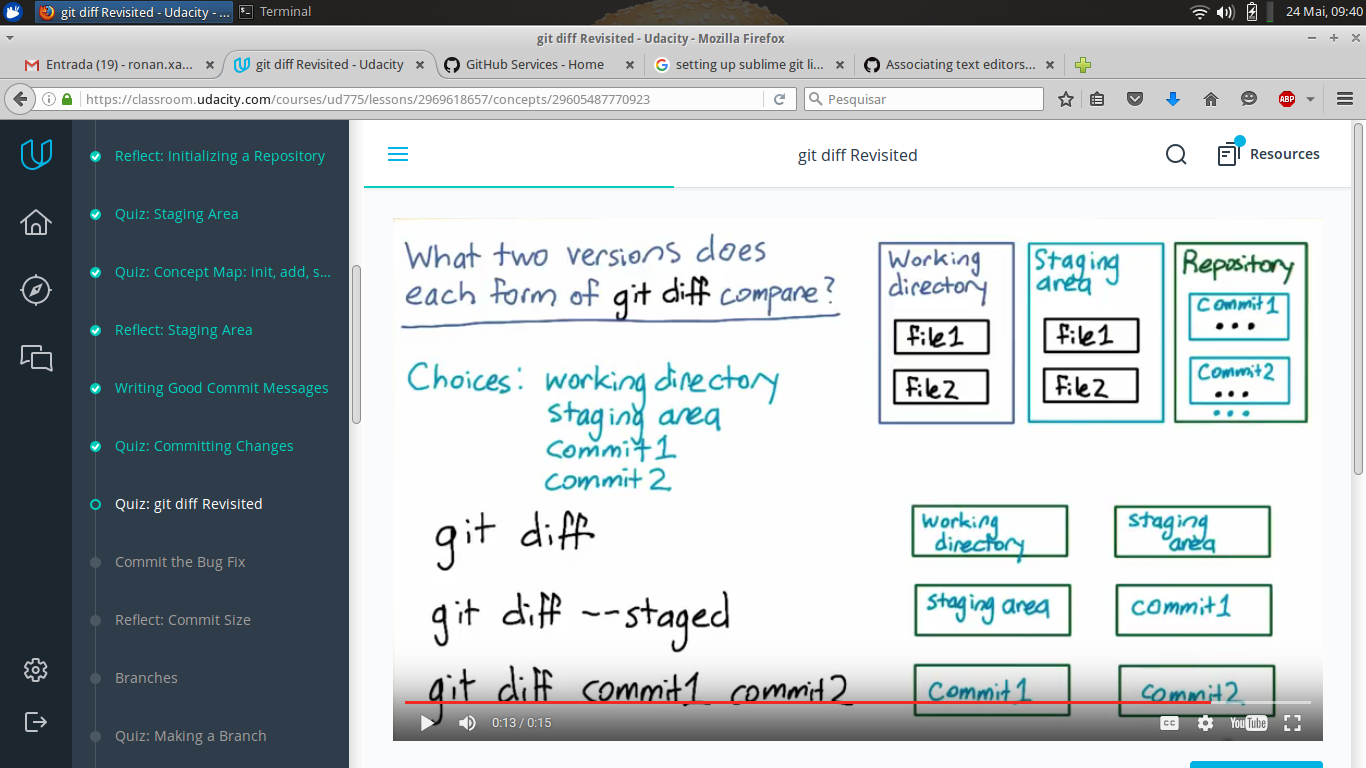 git diff Revisited - Udacity - ...
Terminal
24 Mai, 09:40
git diff Revisited - Udacity - Mozilla Firefox
Entrada (19) - ronan.xa...
git diff Revisited - Udacity
GitHub Services - Home
setting up sublime git li...
Associating text editors...
https://classroom.udacity.com/courses/ud775/lessons/2969618657/concepts/29605487770923
Pesquisar
ABP
Reflect: Initializing a Repository
Quiz: Staging Area
Quiz: Concept Map: init, add, s...
Reflect: Staging Area
Writing Good Commit Messages
Quiz: Committing Changes
Quiz: git diff Revisited
Commit the Bug Fix
Reflect: Commit Size
Branches
Quiz: Making a Branch
git diff Revisited
Resources
What two versions does
each form of git diff compare?
Working
directory
file1
file2
Staging
area
file1
file2
Repository
Commit1
...
Commit2
...
...
Choices: working directory
staging area
commit1
commit2
git diff
working
directory
staging
area
git diff --staged
staging area
commit1
git diff commit1 commit2
commit1
commit2
0:13 / 0:15
CC
YouTube